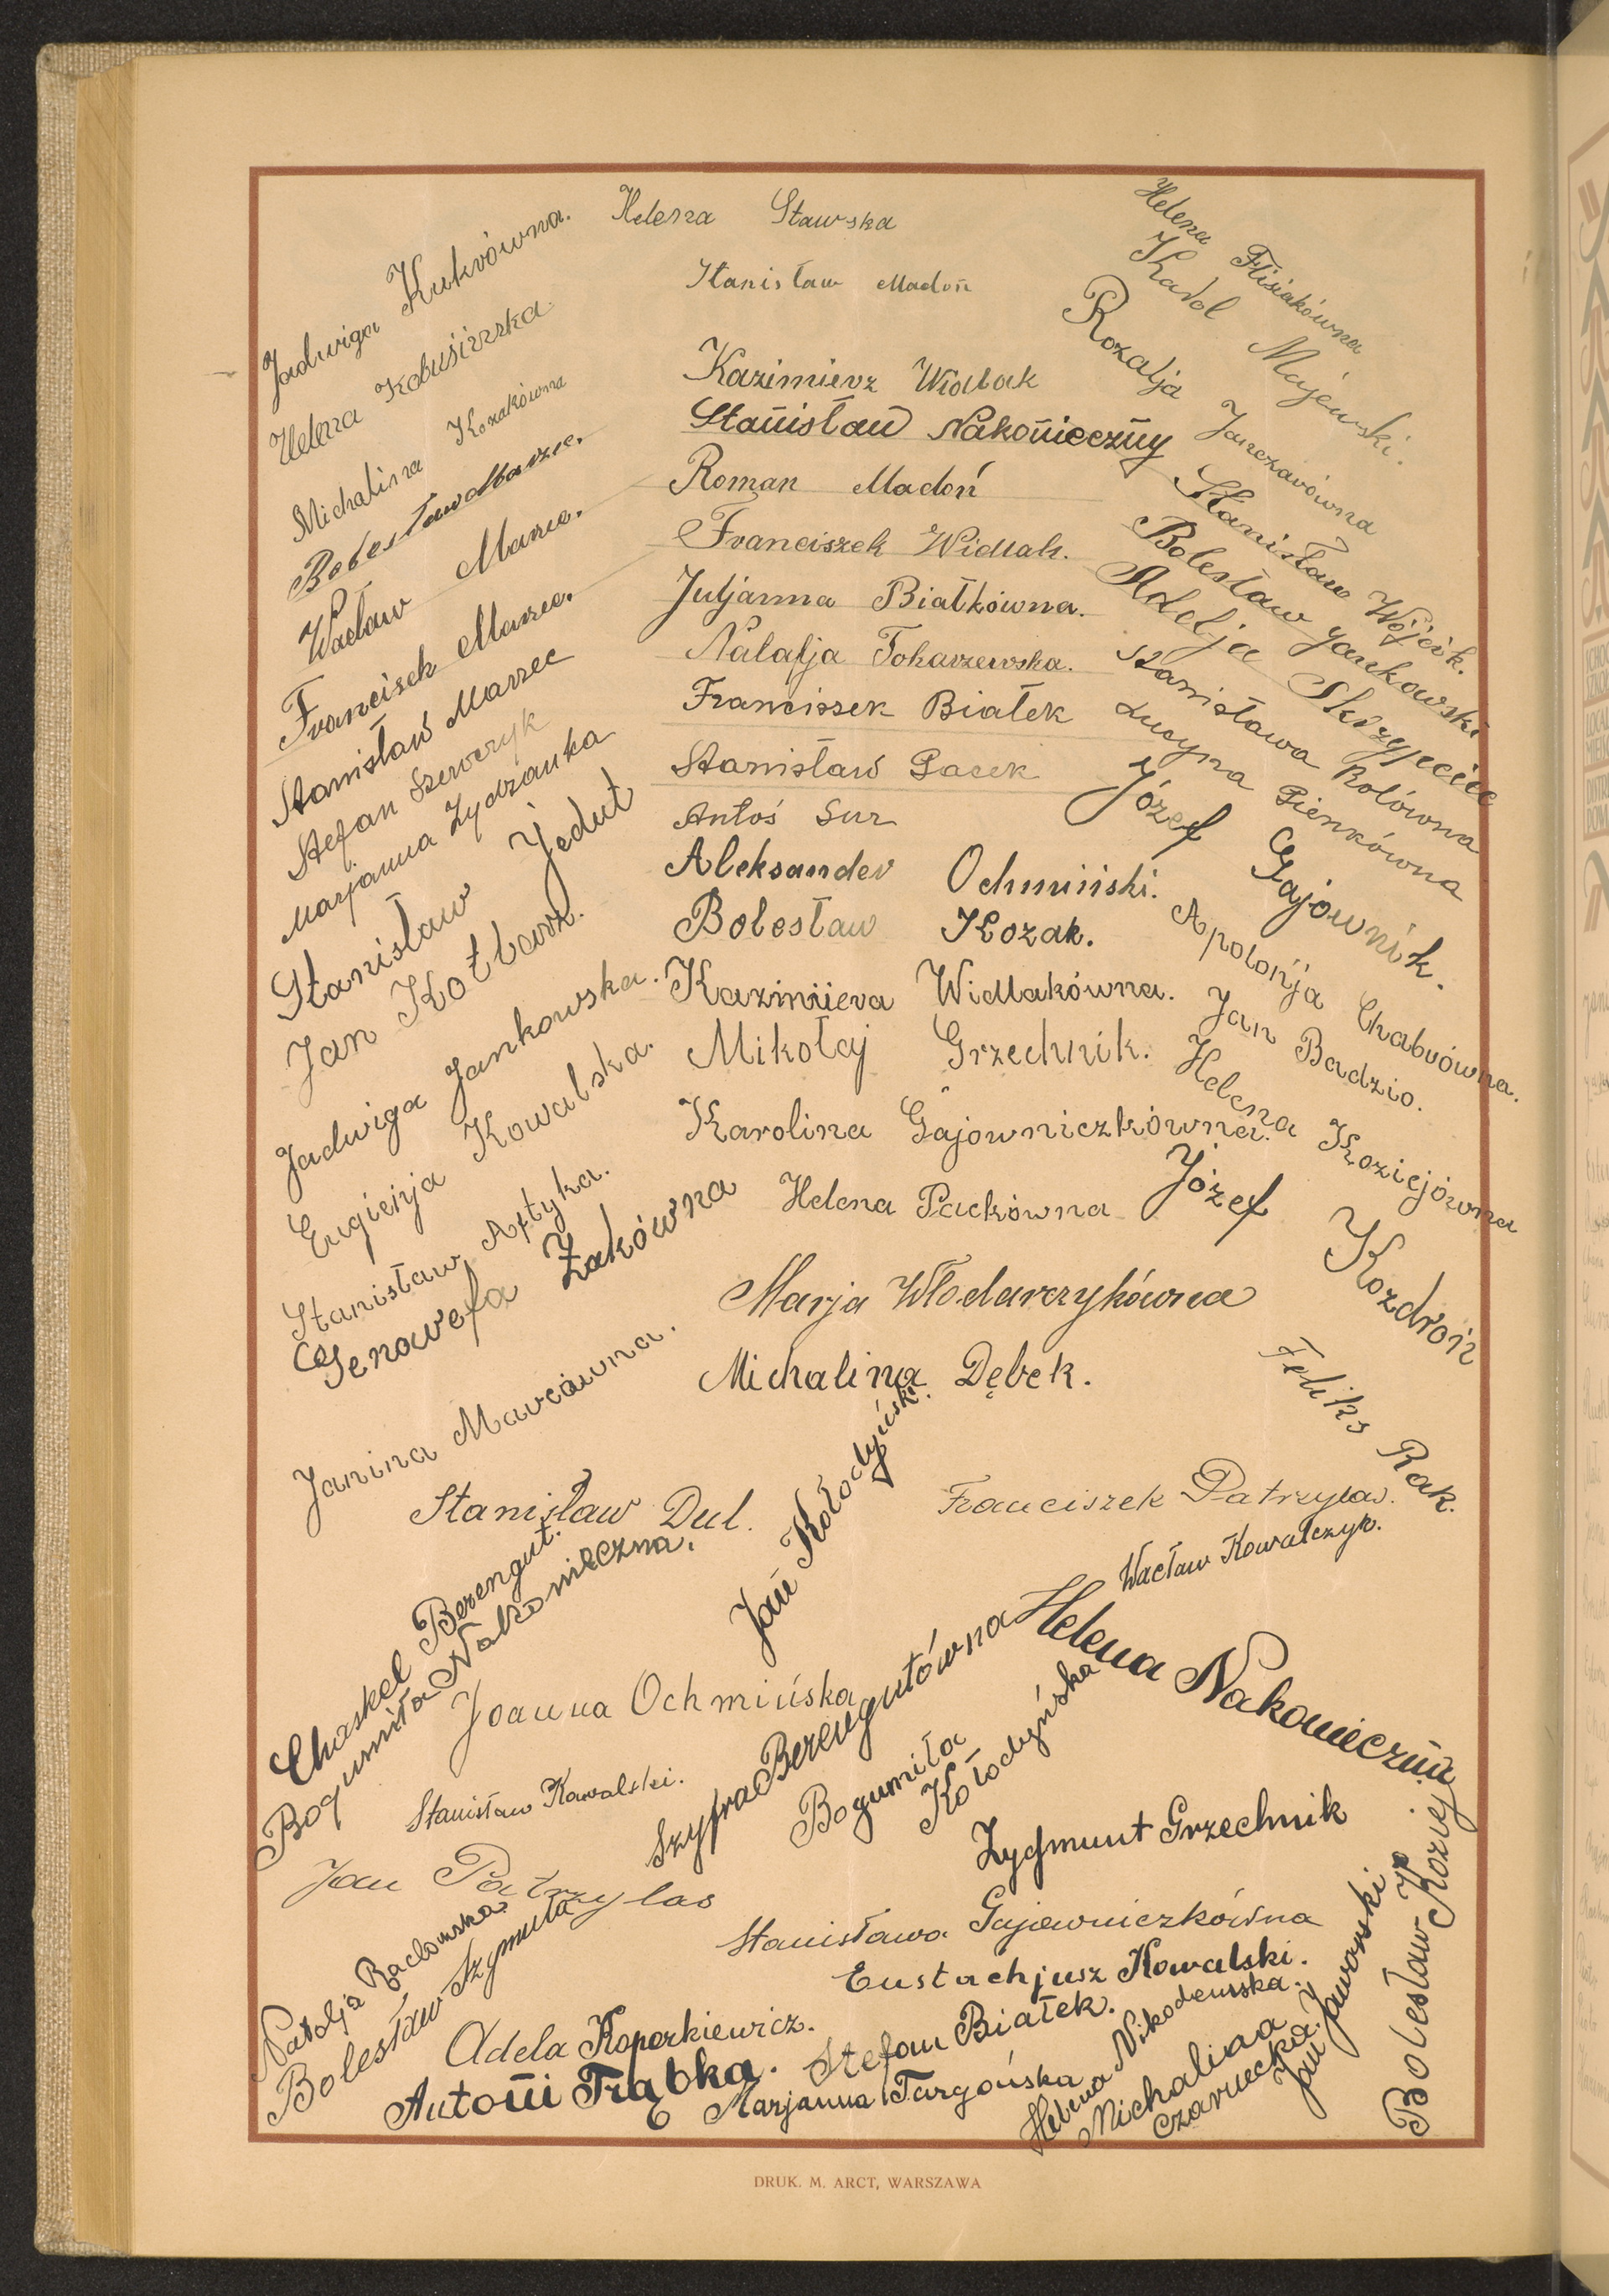 Jadwiga Kukrówna.
Helena Kabusińska
Michalina Kozakówna
Bolesław Marzec.
Wacław Marzec.
Francisek Marzec.
Stanisław Marzec
Stefan Szewczyk
Marjanna Żydzanka
Stanisław Jedut
Jan Kotłarz.
Jadwiga Jankowska.
Eugienja Kowalska.
Stanisław Artyka.
Genowefa Żakówna
Janina Marcówna.
Helena Stawska
Stanisław Madoń
Kazimierz Widlak
Stanisław Nakonieczny
Roman Madoń
Franciszek Widlak.
Juljanna Białkówna.
Natalja Tokarzewska.
Franciszek Białek
Stanisław Pacek
Antoś Sur
Aleksander Ochmiński.
Bolesław Kozak.
Kazimiera Widlakówna.
Mikołaj Grzechnik.
Karolina Gajowniczkówna.
Helena Packówna
Marja Włodarczykówna
Michalina Dębek.
Helena Flisiakówna
Karol Majewski.
Rozalja Janczarówna
Stanisław Wójcik.
Bolesław Jankowski
Adelja Skrzypciec
Stanisława Rolówna
Lucyna Pienkówna
Józef Gajownik.
Apolonja Chabrówna.
Jan Badzio.
Helena Koziejówna
Józef Kozdroń
Feliks Rak.
Stanisław Dul.
Jan Kołodyński.
Franciszek Patrzylas.
Wacław Kowalczyk.
Chaskel Berengut.
Bogumiła Nakonieczna.
Joanna Ochmińska
Szyfra Berengutówna
Helena Nakonieczna
Bogumiła Kołodyńska
Stanisław Kowalski.
Zygmunt Grzechnik
Jan Patrzylas
Stanisława Gajowniczkówna
Eustachjusz Kowalski.
Natalja Racłowska
Bolesław Szymuła
Adela Koperkiewicz.
Stefan Białek.
Antoni Trąbka.
Marjanna Targońska
Helena Nikodemska.
Michalina Czarnecka.
Jan Jaworski
Bolesław Koziej
DRUK. M. ARCT, WARSZAWA